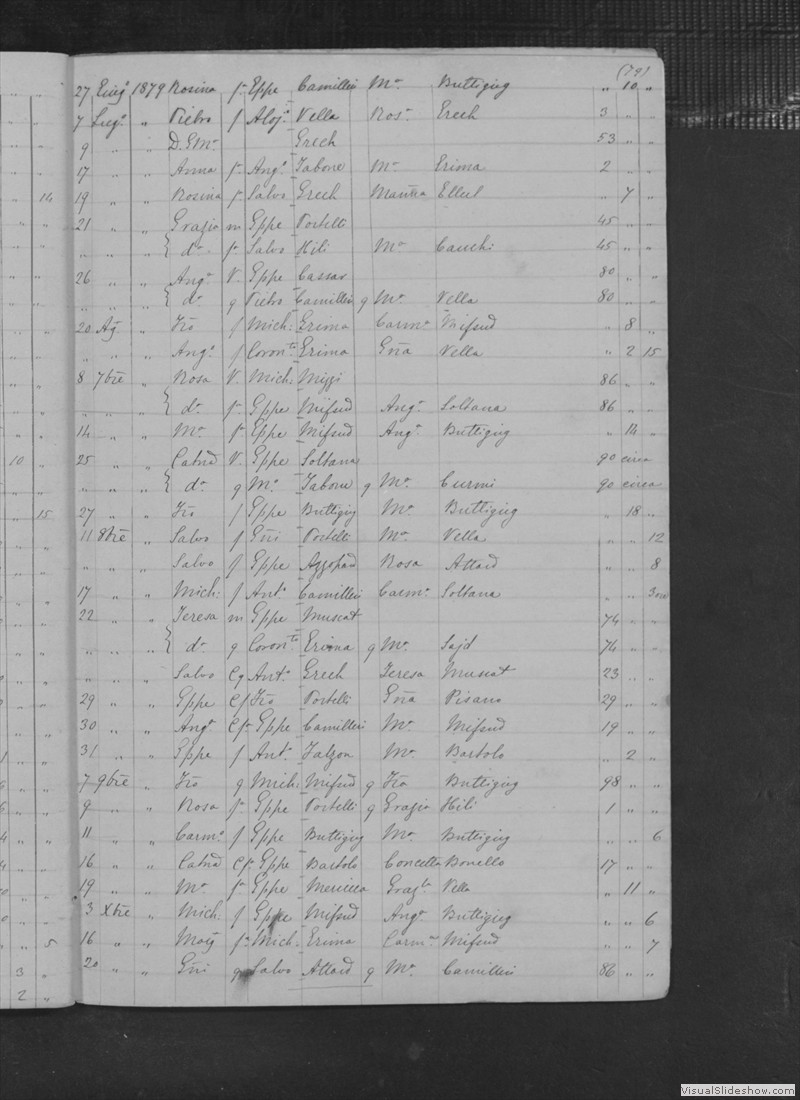 (79)
27 Giugº 1879 Rosina f. Eppe Camilleri Mª Buttigieg " 10 "
7 Lugº " Pietro f Aloj. Vella Rosª Grech 3 " "
9 " " D. G. Mª Grech 53 " "
17 " " Anna f. Angº Tabone Mª Grima 2 " "
19 " " Rosina f. Salvo Grech Ellul " 7 "
21 " " Grazia m Eppe Portelli 45 " "
" " " { dª f. Salvo Hili Mª Cauchi 45 " "
26 " " Angª V. Eppe Cassar 80 " "
" " " { dª g Pietro Camilleri g Mª Vella 80 " "
20 Ag. " Frõ f Mich: Grima Carmª Mifsud " 8 "
" " " Angº f Coronto Grima Gña Vella " 2 15
8 7bre " Rosa V. Mich: Mizzi 86 " "
{ dª f. Eppe Mifsud Angª Soltana 86 " "
14 " " Mª f. Eppe Mifsud Angª Buttigieg " 14 "
25 " " Catnã V. Eppe Soltana 90 circa
" " " { dª g Mº Tabone g Mª Curmi 90 circa
27 " " Frõ f Eppe Buttigieg Mª Buttigieg " 18 "
11 8bre " Salvo f Gñi Portelli Mª Vella " " 12
" " " Salvo f Eppe Azzopard Rosa Attard " " 8
17 " " Mich: f Antº Camilleri Carmª Soltana " "
22 " " Teresa m Eppe Muscat 74 " "
" " " { dª g Coronto Grima g Mª Sajd 74 " "
" " Salvo Cg Antº Grech Teresa Muscat 23 " "
29 " " Eppe Cf Frõ Portelli Gña Pisano 29 " "
30 " " Angª Cf. Eppe Camilleri Mª Mifsud 19 " "
31 " " Eppe f Antº Falzon Mª Bartolo " 2 "
7 9bre " Frõ g Mich: Mifsud g Frã Buttigieg 98 " "
9 " " Rosa f. Eppe Portelli g Grazia Hili 1 " "
11 " " Carmº f Eppe Buttigieg Mª Buttigieg " " 6
16 " " Catnã Cf. Eppe Bartolo Concetta Bonello 17 " "
19 " " Mª f. Eppe Grazta Vella " 11 "
3 Xbre " Mich: f Eppe Mifsud Angª Buttigieg " " 6
16 " " f. Mich: Grima Carmª Mifsud " " 7
20 " " Gñi g Salvo Attard g Mª Camilleri 86 " "
14
10
15
5
3 "
2 "
VisualSlideshow.com